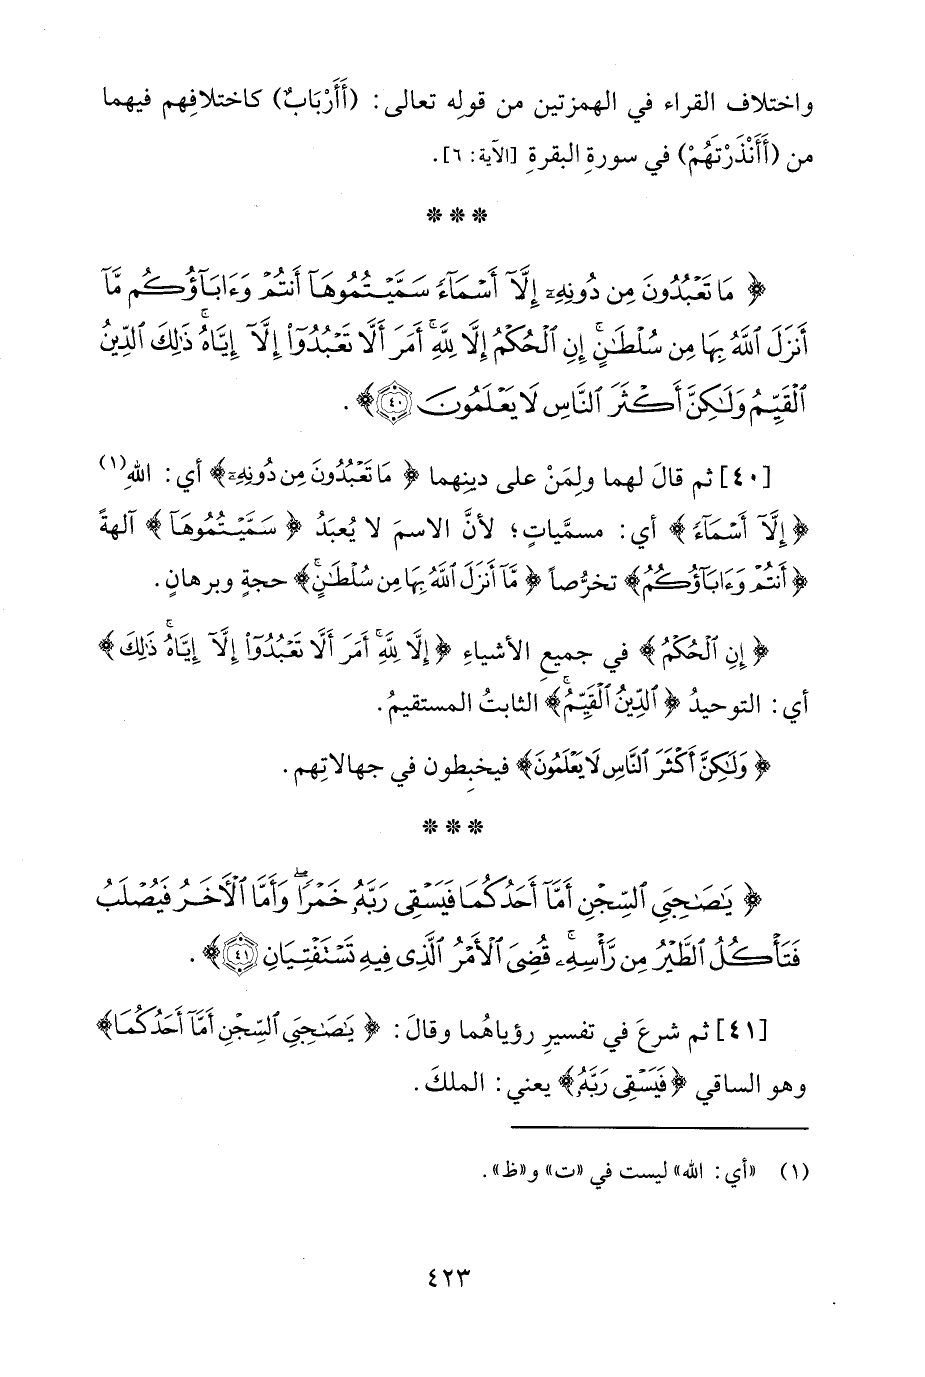 واختلاف القراء في الهمزتين من قولِه تعالى: (أَأَرْبَابٌ) كاختلافِهم فيهما
من (أَأَنْذَرْتَهُمْ) في سورةِ البقرةِ [الآية: ٦].
***
﴿ مَا تَعْبُدُونَ مِن دُونِهِۦٓ إِلَّآ أَسْمَآءً سَمَّيْتُمُوهَآ أَنتُمْ وَءَابَآؤُكُم مَّآ
أَنزَلَ ٱللَّهُ بِهَا مِن سُلْطَٰنٍ ۚ إِنِ ٱلْحُكْمُ إِلَّا لِلَّهِ ۚ أَمَرَ أَلَّا تَعْبُدُوٓا۟ إِلَّآ إِيَّاهُ ۚ ذَٰلِكَ ٱلدِّينُ
ٱلْقَيِّمُ وَلَٰكِنَّ أَكْثَرَ ٱلنَّاسِ لَا يَعْلَمُونَ ٤٠ ﴾.
[٤٠] ثم قالَ لهما ولِمَنْ على دينِهما ﴿ مَا تَعْبُدُونَ مِن دُونِهِۦٓ ﴾ أي: اللهِ(١)
﴿ إِلَّآ أَسْمَآءً ﴾ أي: مسمَّياتٍ؛ لأنَّ الاسمَ لا يُعبَدُ ﴿ سَمَّيْتُمُوهَآ ﴾ آلهةً
﴿ أَنتُمْ وَءَابَآؤُكُمُ ﴾ تخرُّصاً ﴿ مَّآ أَنزَلَ ٱللَّهُ بِهَا مِن سُلْطَٰنٍ ۚ ﴾ حجةٍ وبرهانٍ.
﴿ إِنِ ٱلْحُكْمُ ﴾ في جميعِ الأشياءِ ﴿ إِلَّا لِلَّهِ ۚ أَمَرَ أَلَّا تَعْبُدُوٓا۟ إِلَّآ إِيَّاهُ ۚ ذَٰلِكَ ﴾
أي: التوحيدُ ﴿ ٱلدِّينُ ٱلْقَيِّمُ ۚ ﴾ الثابتُ المستقيمُ.
﴿ وَلَٰكِنَّ أَكْثَرَ ٱلنَّاسِ لَا يَعْلَمُونَ ﴾ فيخبِطون في جهالاتِهم.
***
﴿ يَٰصَىٰحِبَىِ ٱلسِّجْنِ أَمَّآ أَحَدُكُمَا فَيَسْقِى رَبَّهُۥ خَمْرًا ۖ وَأَمَّا ٱلْأَخَرُ فَيُصْلَبُ
فَتَأْكُلُ ٱلطَّيْرُ مِن رَّأْسِهِۦ ۚ قُضِىَ ٱلْأَمْرُ ٱلَّذِى فِيهِ تَسْتَفْتِيَانِ ٤١ ﴾.
[٤١] ثم شرعَ في تفسيرِ رؤياهُما وقالَ: ﴿ يَٰصَىٰحِبَىِ ٱلسِّجْنِ أَمَّآ أَحَدُكُمَا ﴾
وهو الساقي ﴿ فَيَسْقِى رَبَّهُۥ ﴾ يعني: الملكَ.
(١) «أي: الله» ليست في «ت» و«ظ».
٤٢٣